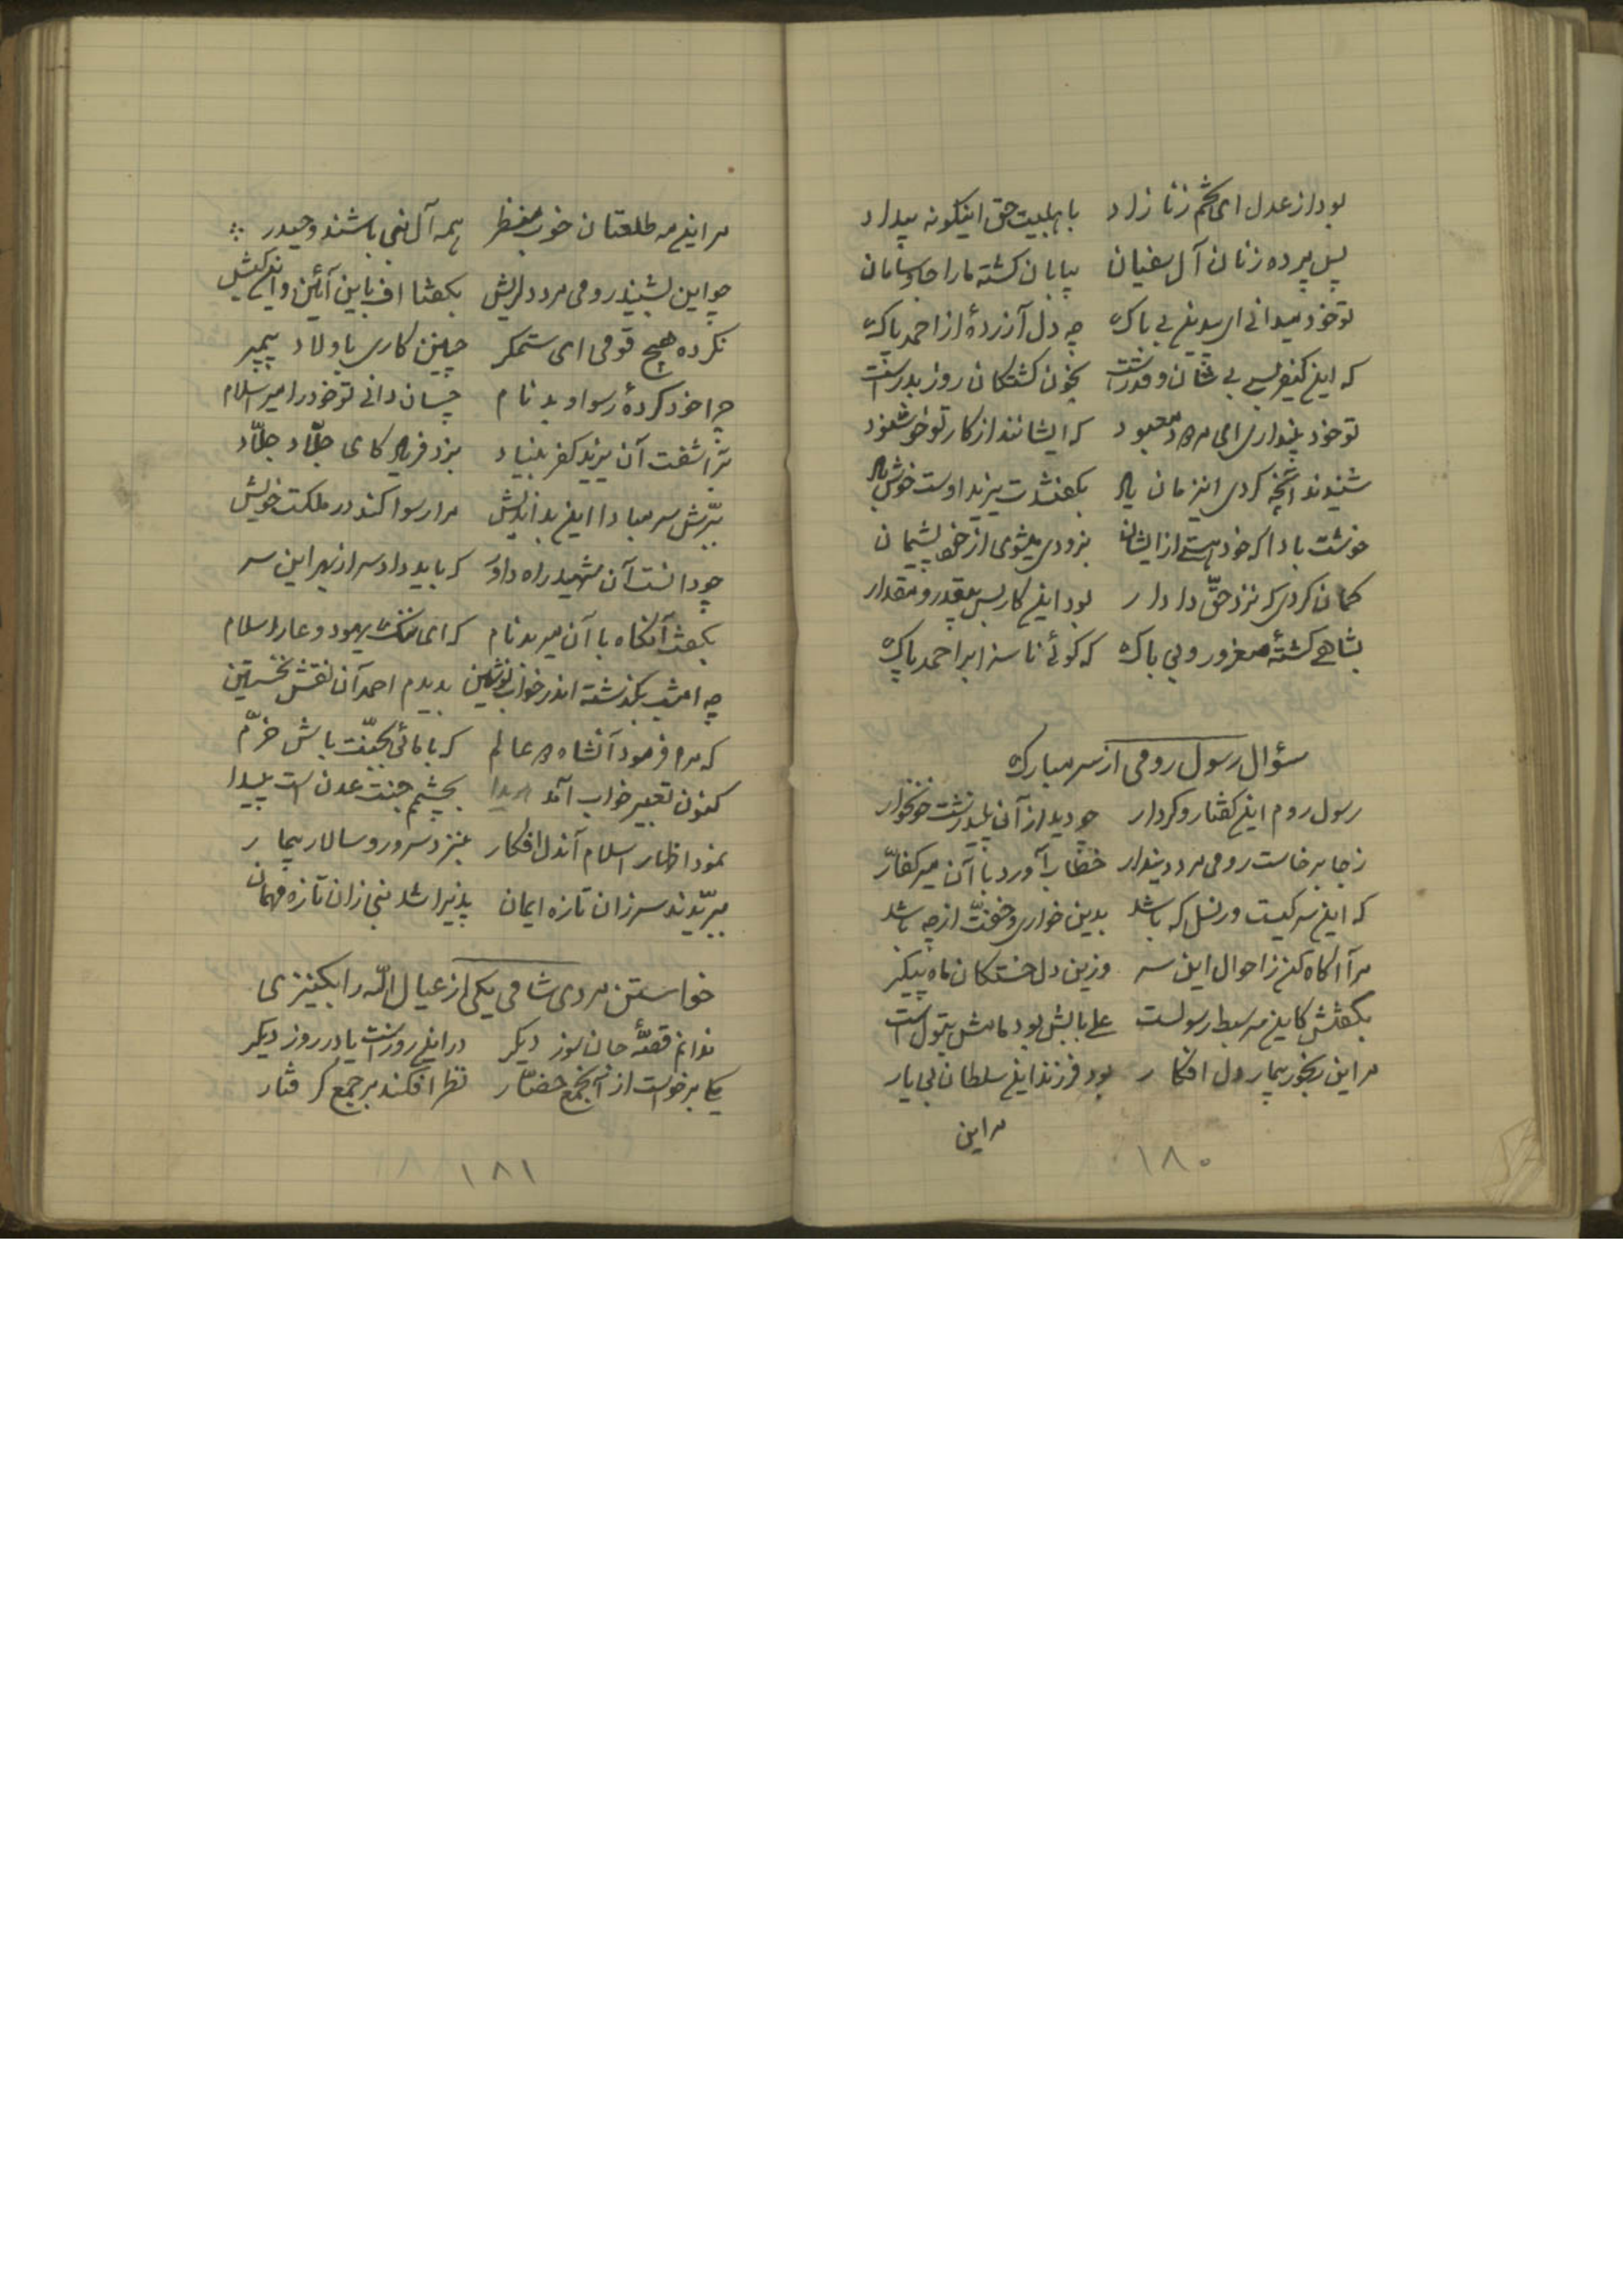 بود از عدل ای تخم زنا زاد با هلبیت حق اینگونه بیداد
پس پرده زنان آل سفیان بیابان گشته ما را جا و سامان
تو خود میدانی ای بیدین بی باک چه دل آزردهٔ از احمد پاک
که این کیفر بسی بی شان و قدر است بخون کشتگان روز بدر است
تو خود پنداری ای مردود معبود که ایشانند از کار تو خوشنود
شنیدند آنچه کردی اینزمان بگفتندت یزیدا دست خوش
خوشت بادا که خود هستی از ایشان بزودی میشوی از خود پشیمان
گمان کردی که نزد حقّ دادار بود این کار بس بیقدر و مقدار
بشاهی گشتهٔ مغرور و بی باک که گوئی ناسزا بر احمد پاک
سؤال رسول رومی از سر مبارک
رسول روم این گفتار و کردار چو دید از آن پلید زشت خونخوار
ز جا برخاست رومی مرد دیندار خطاب آورد با آن میر کفّار
که این سر کیست و ز نسل که باشد بدین خواری و خفّت از چه باشد
مرا آگاه کن ز احوال این سر وزین دل خستگان ماه پیکر
بگفتش کاین سر سبط رسولست علی بابش بود مامش بتول است
مر این رنجور بیمار دل افکار بود فرزند این سلطان بی یار
مر این
۱۸۰
مر این مه طلعتان خوب منظر همه آل نبی باشند و حیدر
چو این بشنید رومی مرد دلریش بگفتا اف باین آئین و این کیش
نکرده هیچ قومی ای ستمگر چنین کاری باولاد پیمبر
چرا خود کردهٔ رسوا و بدنام چسان دانی تو خود را میر اسلام
بر آشفت آن یزید کفر بنیاد بزد فریاد کای جلّاد جلّاد
ببرّش سر مبادا این بد اندیش مرا رسوا کند در مملکت خویش
چو دانست آن شهید راه داور که باید داد سر از بهر این سر
بگفت آنگاه با آن میر بدنام که ای ننگ یهود و عار اسلام
چه امشب بگذشته اندر خواب نوشین بدیدم احمد آن نقش نخستین
که مرا فرمود آنشاه دو عالم که با مائی بجنّت باش خرّم
کنون تعبیر خواب آمد هویدا بچشمم جنّت عدن است پیدا
نمود اظهار اسلام آندل افکار بنزد سرور و سالار بیمار
ببرّیدند سر زان تازه ایمان پذیرا شد نبی زان تازه مهمان
خواستن مردی شامی یکی از عیال الله را بکنیزی
ندانم قصّهٔ جان سوز دیگر در این روز است یا در روز دیگر
یکی برخواست از آنجمع حضّار نظر افکند بر جمع گرفتار
۱۸۱